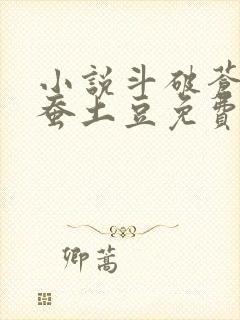 小說斗破蒼
蚕土豆免費
卿蒿